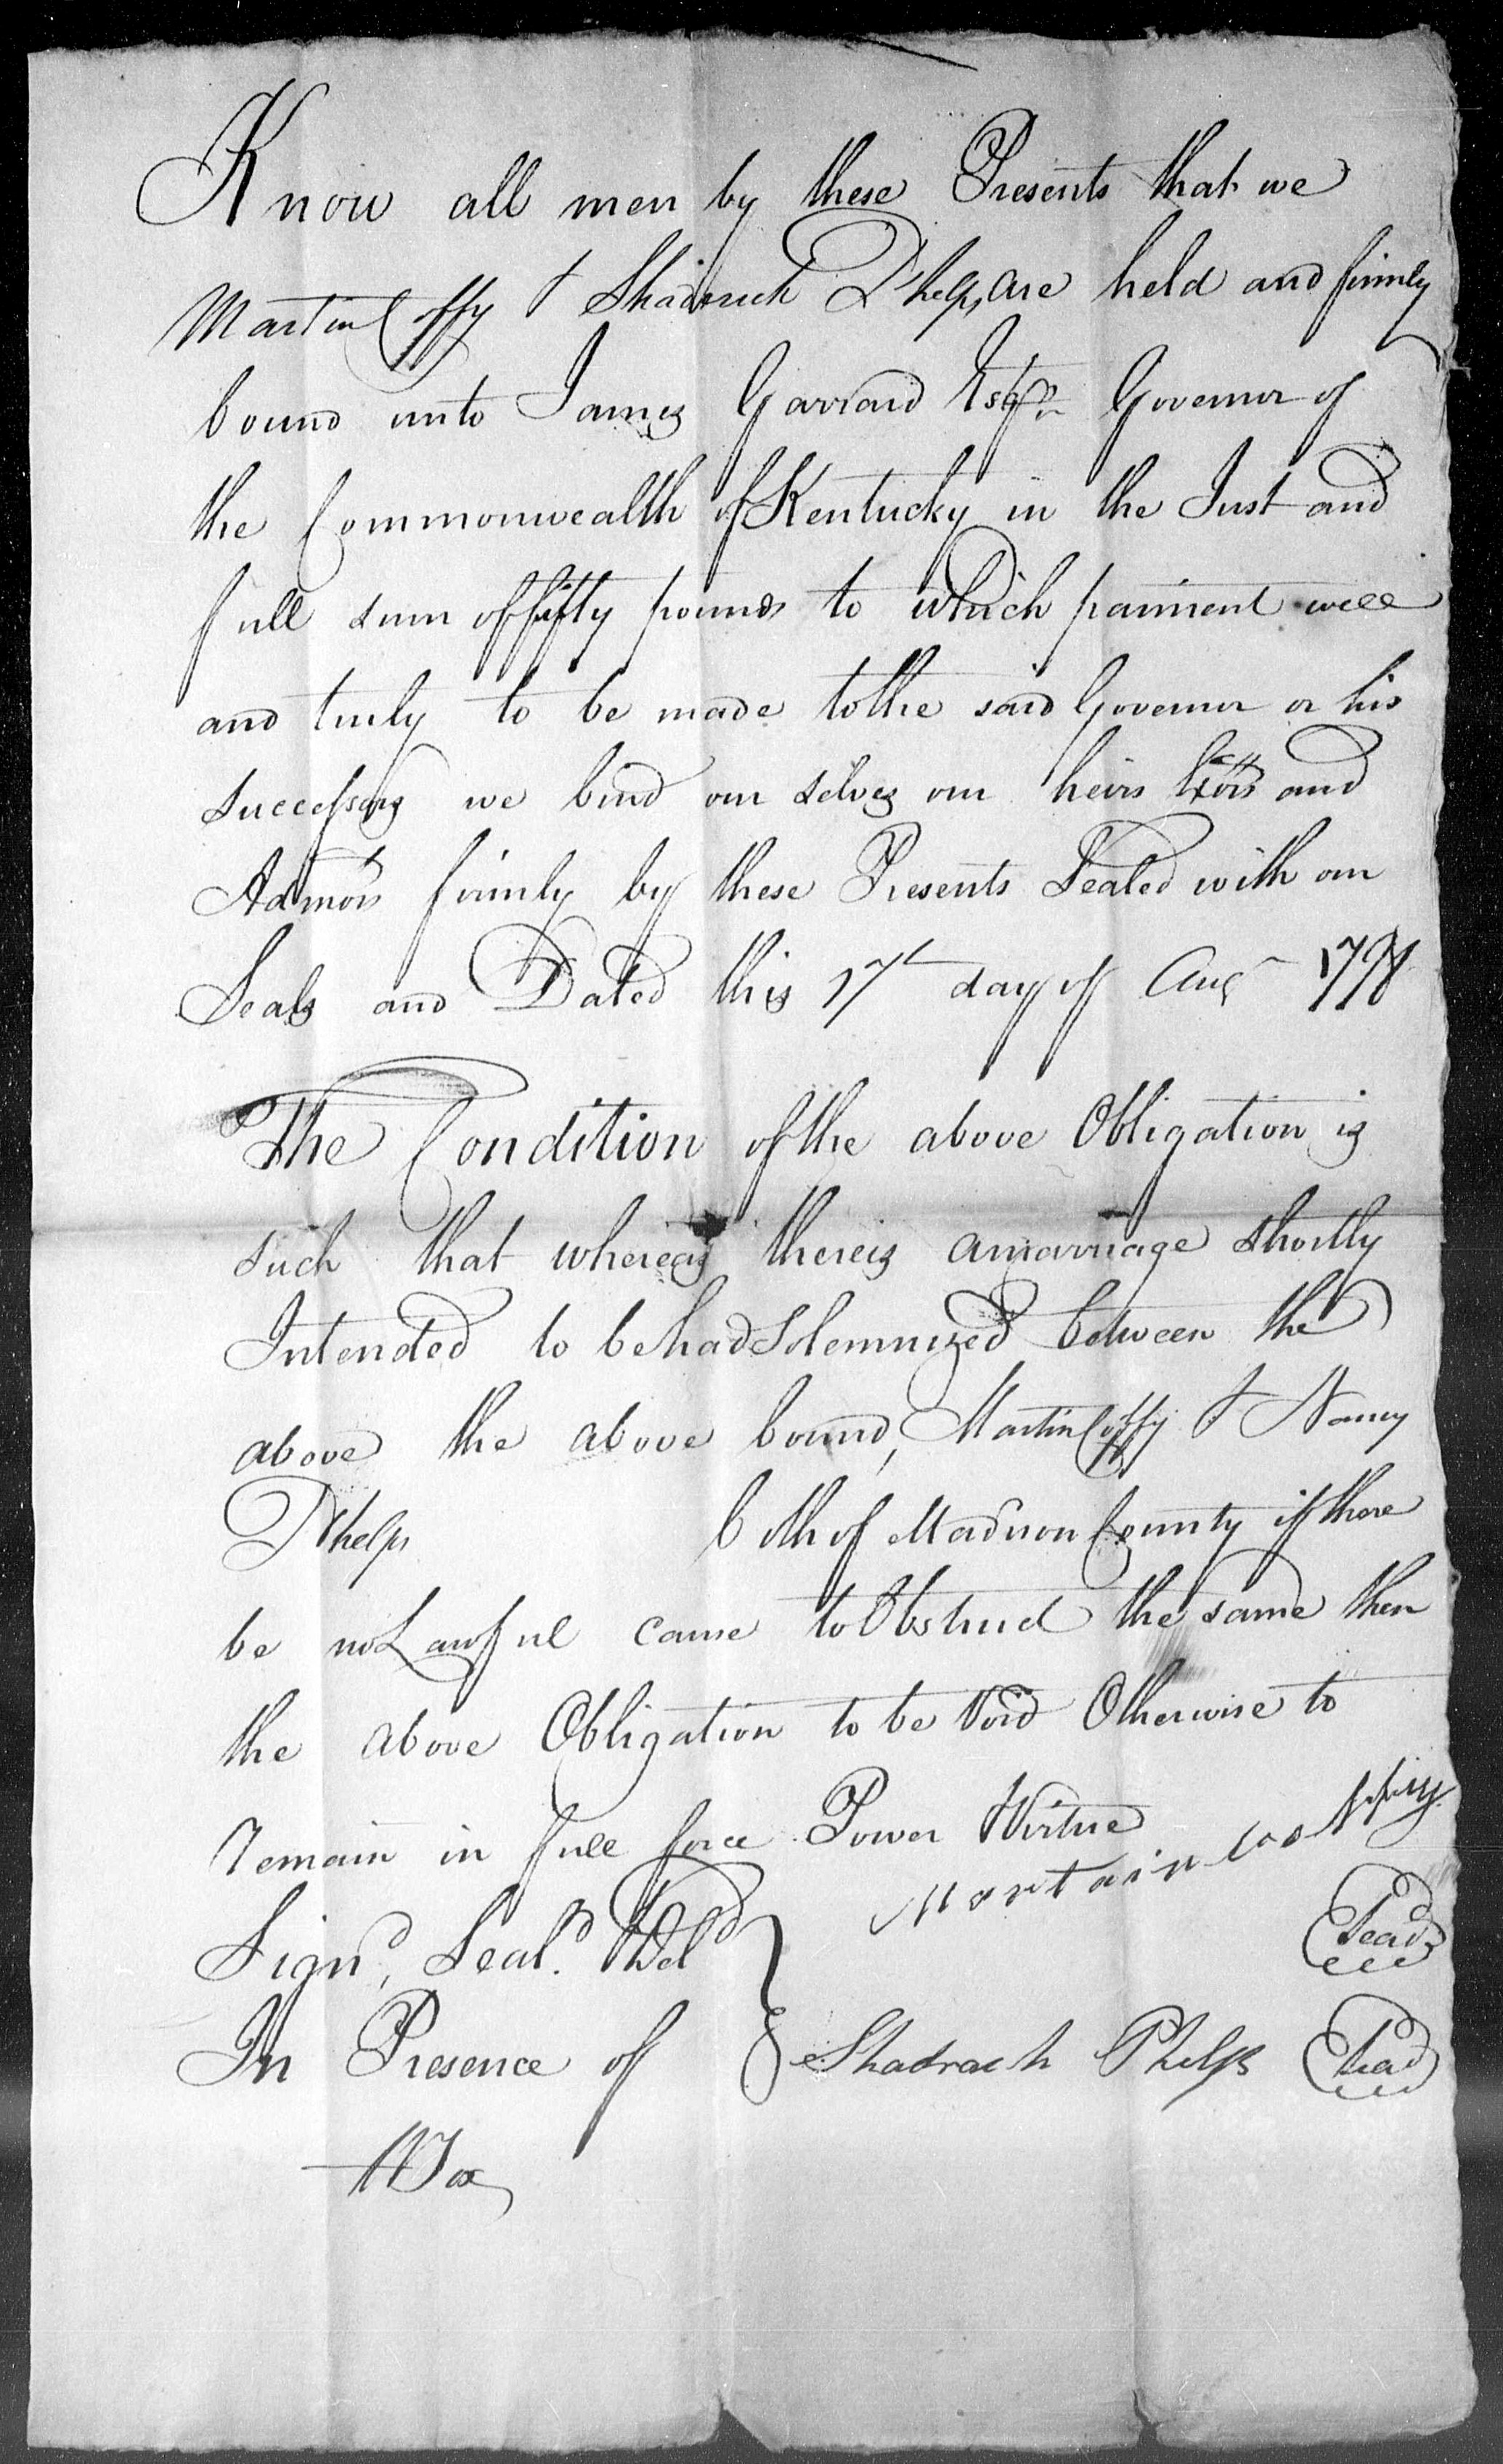 Know all men by these Presents that we
Martin Coffy & Shadrick Phelps, are held and firmly
bound unto James Garrard Esqr. Governor of
the Commonwealth of Kentucky in the Just and
full sum of fifty pounds to which paiment well
and truly to be made to the said Governor or his
successors we bind our selves our heirs Exors and
Admors firmly by these Presents Sealed with our
Seals and Dated this 17th day of Augt 1798
The Condition of the above Obligation is
such that whereas there is a marriage shortly
Intended to be had Solemnized between the
above the above bound, Martin Coffy & Nancy
Phelps both of Madison County if there
be no Lawful cause to Obstruct the same then
the above Obligation to be Void Otherwise to
Remain in full force Power & Virtue
Signd, Seald. & Deld
Martain
Seal
In Presence of
Shadrach Phelps
Seal